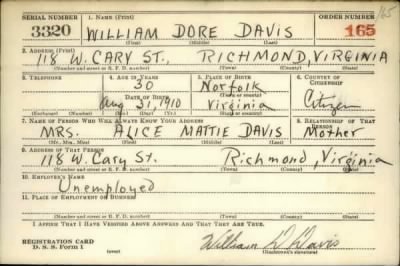 SERIAL NUMBER 1. NAME (Print) ORDER NUMBER 165
3320 WILLIAM DORE DAVIS 165
(First) (Middle) (Last)
2. ADDRESS (Print)
118 W. CARY ST., RICHMOND, VIRGINIA
(Number and street or R. F. D. number) (Town) (County) (State)
3. TELEPHONE 4. AGE IN YEARS 5. PLACE OF BIRTH 6. COUNTRY OF CITIZENSHIP
30 Norfolk
DATE OF BIRTH (Town or county)
Aug 31, 1910 Virginia Citizen
(Exchange) (Number) (Mo.) (Day) (Yr.) (State or country)
7. NAME OF PERSON WHO WILL ALWAYS KNOW YOUR ADDRESS 8. RELATIONSHIP OF THAT PERSON
MRS. ALICE MATTIE DAVIS Mother
(Mr., Mrs., Miss) (First) (Middle) (Last)
9. ADDRESS OF THAT PERSON
118 W. Cary St. Richmond, Virginia
(Number and street or R. F. D. number) (Town) (County) (State)
10. EMPLOYER'S NAME
Unemployed
11. PLACE OF EMPLOYMENT OR BUSINESS
(Number and street or R. F. D. number) (Town) (County) (State)
I AFFIRM THAT I HAVE VERIFIED ABOVE ANSWERS AND THAT THEY ARE TRUE.
REGISTRATION CARD
D. S. S. Form 1 (over) William D. Davis
(Registrant's signature)